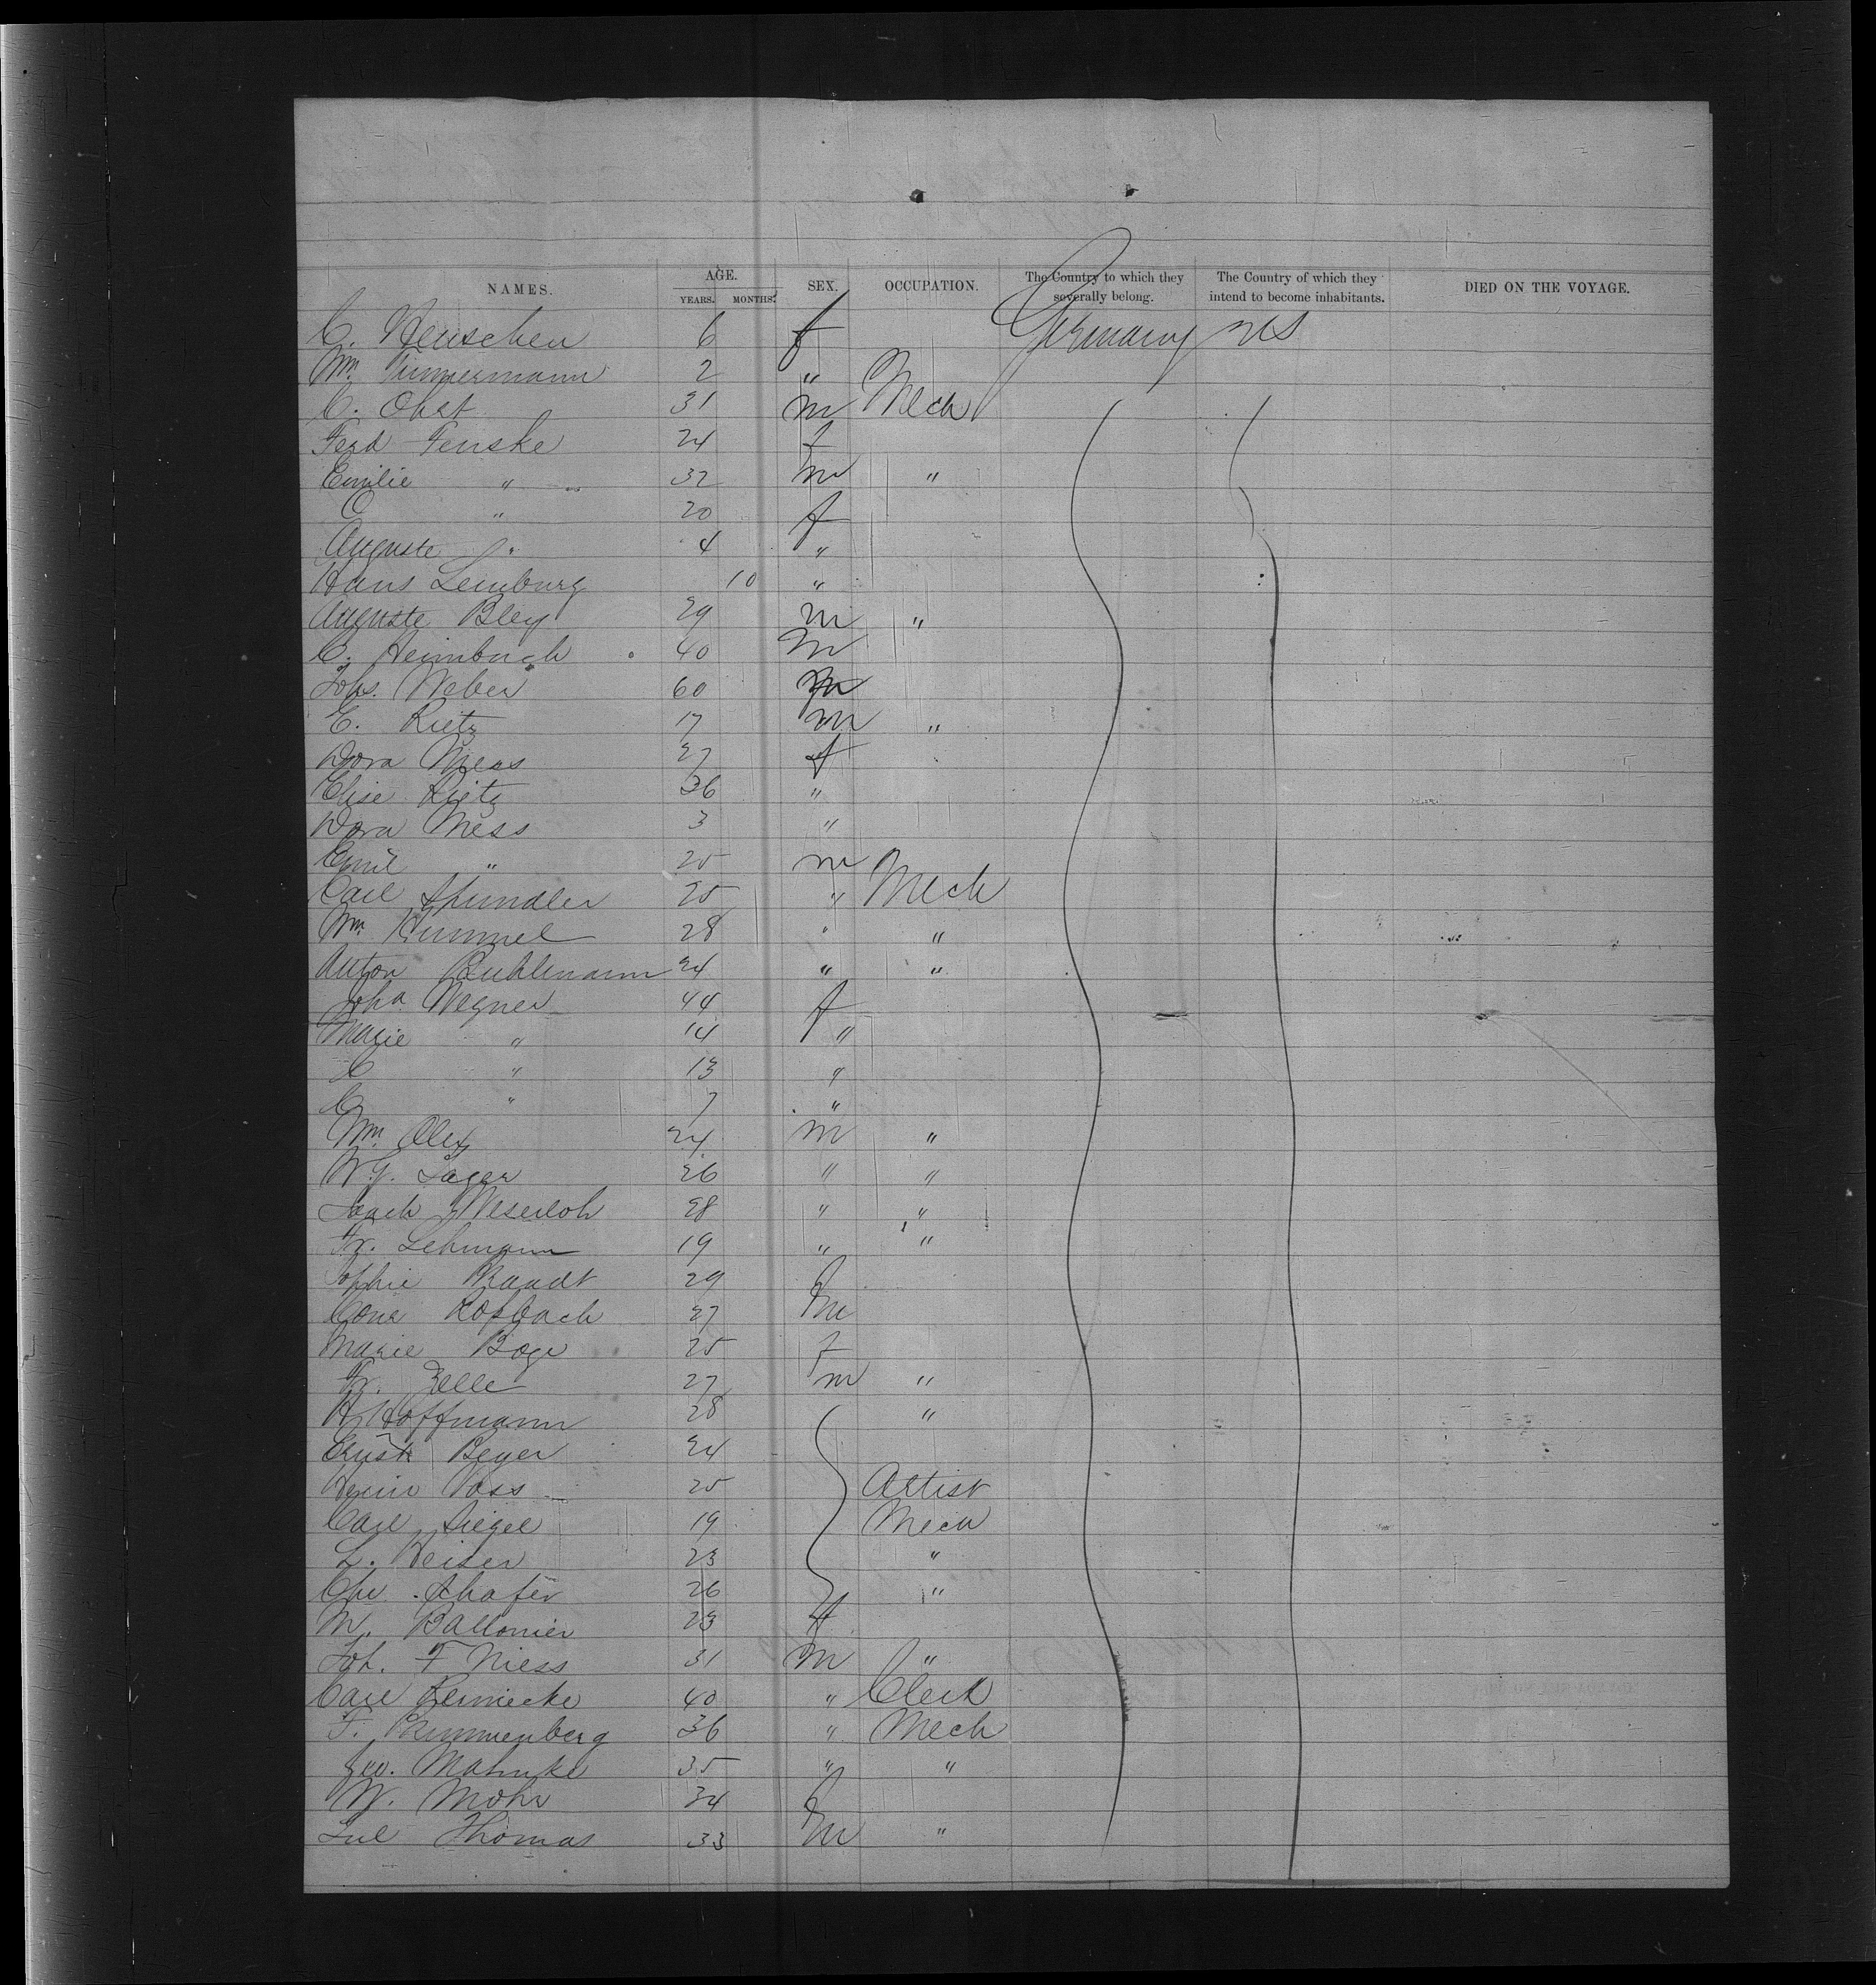 NAMES. AGE. YEARS. MONTHS. SEX. OCCUPATION. The Country to which they severally belong. The Country of which they intend to become inhabitants. DIED ON THE VOYAGE.
C. Henschen 6 f Germany US
Wm. Timmermann 2 "
C. Obst 31 m Mech
Ferd Fenske 24 f
Emilie " 32 m "
O " 20 f
Auguste " 4 "
Hans Lemburg 10 "
Auguste Bley 29 m "
C. Heimbuch 40 m
Johs. Weber 60 m
E. Rietz 17 m "
Dora Mess 27 f
Elise Rietz 36 "
Dora Mess 3 "
Emil " 25 m
Carl Spindler 25 " Mech
Wm. Hummel 28 " "
Anton Buhlmann 24 " "
Joha Wegner 44 f
Marie " 14 "
C " 13 "
C " 7 "
Wm. Olex 24 m "
W. Lager 26 " "
Weserloh 28 " "
Fr. Lehmann 19 " "
Sophie Brandt 29 f
Rosbach 27 m
Marie Boge 25 f
Fr. Zelle 27 m "
H Hoffmann 28 "
Ernst Beyer 24
Heinr Voss 25 Artist
Carl Siegel 19 Mech
L. Heiser 23 "
Chr. Schafer 26 "
M. Ballonier 23 f
Joh. F Niess 31 m "
Carl Reinecke 40 " Clerk
F. Brummenberg 36 " Mech
Geo. Mahnke 35 " "
W. Mohr 34 f
Jul Thomas 33 m "